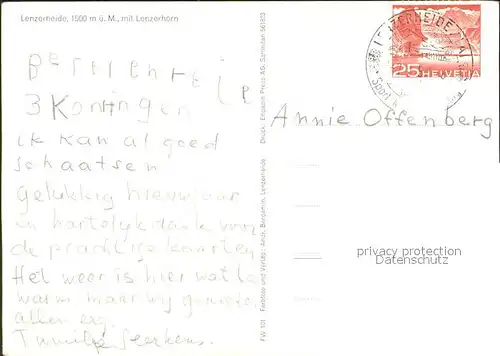 Lenzerheide, 1500 m ü. M., mit Lenzerhorn
LENZERHEIDE
Sport
25 HELVETIA
3 Koningen
ik kan al goed
schaatsen
gelukkig nieuwjaar
en hartelyk dank voor
de prachtige kaarten
Het weer is hier wat te
warm maar wy genieten
allen erg.
Familie
Annie Offenberg
privacy protection
Datenschutz
Druck: Engadin Press AG, Samedan 561803
FW 101 Farbfoto und Verlag: Andr. Bergamin, Lenzerheide